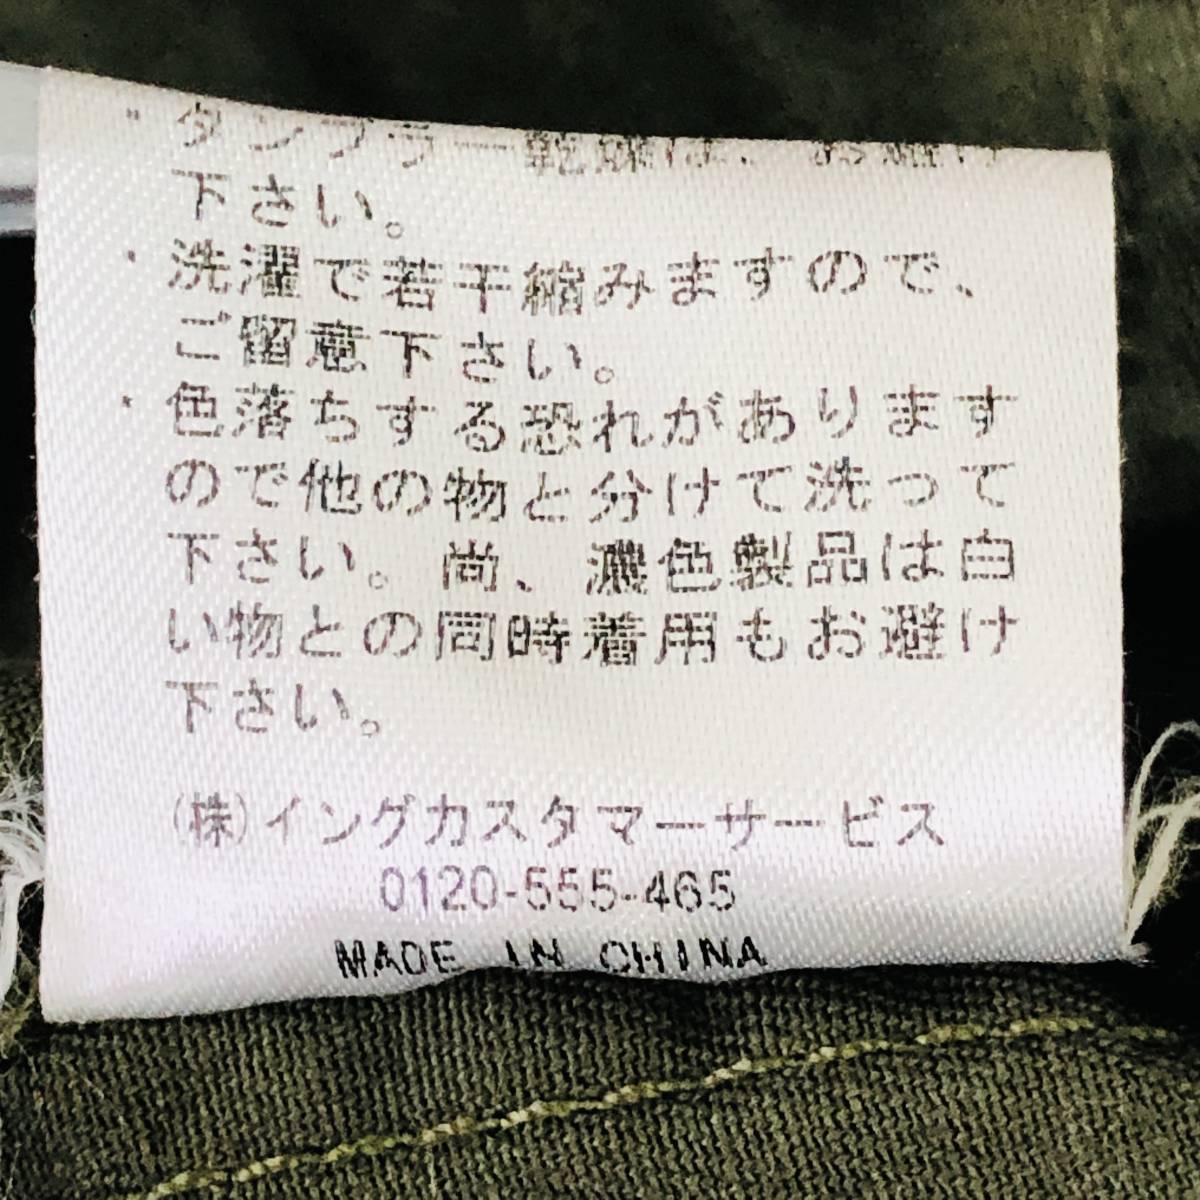 ・タンブラー乾燥は、お避け
下さい。
・洗濯で若干縮みますので、
ご留意下さい。
・色落ちする恐れがあります
ので他の物と分けて洗って
下さい。尚、濃色製品は白
い物との同時着用もお避け
下さい。
(株)イングカスタマーサービス
0120-555-465
MADE IN CHINA